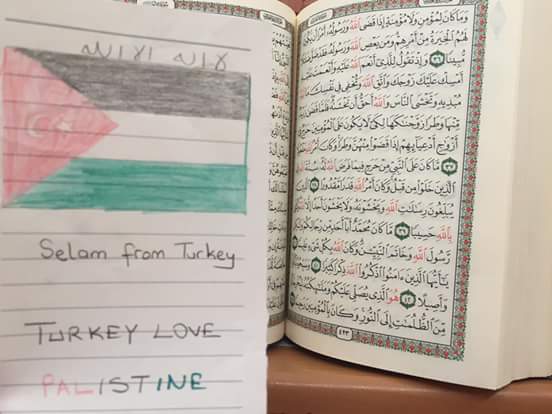 لا اله الا الله
Selam from Turkey
TURKEY LOVE
PALISTINE
وَمَا كَانَ لِمُؤْمِنٍ وَلَا مُؤْمِنَةٍ إِذَا قَضَى اللَّهُ وَرَسُولُهُ أَمْرًا أَن يَكُونَ
لَهُمُ الْخِيَرَةُ مِنْ أَمْرِهِمْ وَمَن يَعْصِ اللَّهَ وَرَسُولَهُ فَقَدْ ضَلَّ ضَلَالًا
مُّبِينًا ٣٦ وَإِذْ تَقُولُ لِلَّذِي أَنْعَمَ اللَّهُ عَلَيْهِ وَأَنْعَمْتَ عَلَيْهِ
أَمْسِكْ عَلَيْكَ زَوْجَكَ وَاتَّقِ اللَّهَ وَتُخْفِي فِي نَفْسِكَ مَا اللَّهُ
مُبْدِيهِ وَتَخْشَى النَّاسَ وَاللَّهُ أَحَقُّ أَن تَخْشَاهُ فَلَمَّا قَضَى زَيْدٌ
مِّنْهَا وَطَرًا زَوَّجْنَاكَهَا لِكَيْ لَا يَكُونَ عَلَى الْمُؤْمِنِينَ حَرَجٌ فِي
أَزْوَاجِ أَدْعِيَائِهِمْ إِذَا قَضَوْا مِنْهُنَّ وَطَرًا وَكَانَ أَمْرُ اللَّهِ مَفْعُولًا
٣٧ مَّا كَانَ عَلَى النَّبِيِّ مِنْ حَرَجٍ فِيمَا فَرَضَ اللَّهُ لَهُ سُنَّةَ اللَّهِ فِي
الَّذِينَ خَلَوْا مِن قَبْلُ وَكَانَ أَمْرُ اللَّهِ قَدَرًا مَّقْدُورًا ٣٨ الَّذِينَ
يُبَلِّغُونَ رِسَالَاتِ اللَّهِ وَيَخْشَوْنَهُ وَلَا يَخْشَوْنَ أَحَدًا إِلَّا اللَّهَ وَكَفَى
بِاللَّهِ حَسِيبًا ٣٩ مَّا كَانَ مُحَمَّدٌ أَبَا أَحَدٍ مِّن رِّجَالِكُمْ وَلَكِن
رَّسُولَ اللَّهِ وَخَاتَمَ النَّبِيِّينَ وَكَانَ اللَّهُ بِكُلِّ شَيْءٍ عَلِيمًا ٤٠
يَا أَيُّهَا الَّذِينَ آمَنُوا اذْكُرُوا اللَّهَ ذِكْرًا كَثِيرًا ٤١ وَسَبِّحُوهُ بُكْرَةً
وَأَصِيلًا ٤٢ هُوَ الَّذِي يُصَلِّي عَلَيْكُمْ وَمَلَائِكَتُهُ لِيُخْرِجَكُم
مِّنَ الظُّلُمَاتِ إِلَى النُّورِ وَكَانَ بِالْمُؤْمِنِينَ رَحِيمًا ٤٣
٤٢٣